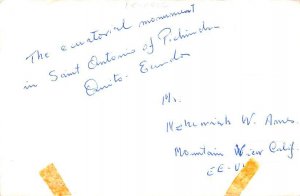 The ecuatorial monument
in Sant Antonio of Pichincha
Quito. Ecuador
Mr.
W. Ames
Mountain View Calif.
EE-UU